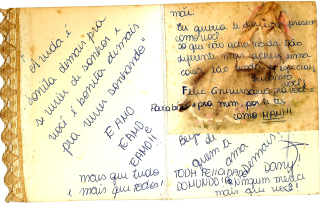 "A vida é
bonita demais pra
se viver de sonhos e
você é bonita demais
pra viver sonhando"
TE AMO
TE AMO
TE AMO!!
mais que tudo
e mais que todos!
mãe:
Eu queria te dar um presente
como você.
Só que não achei nada tão
diferente mas achei uma
coisa tão
Feliz Aniversário pra você
Parabéns pra mim, por te ter
como MÃE!!!
Beijos de
quem te ama
Demais:
TODA FELICIDADE DO
MUNDO!! E ninguém merece
mais que você!